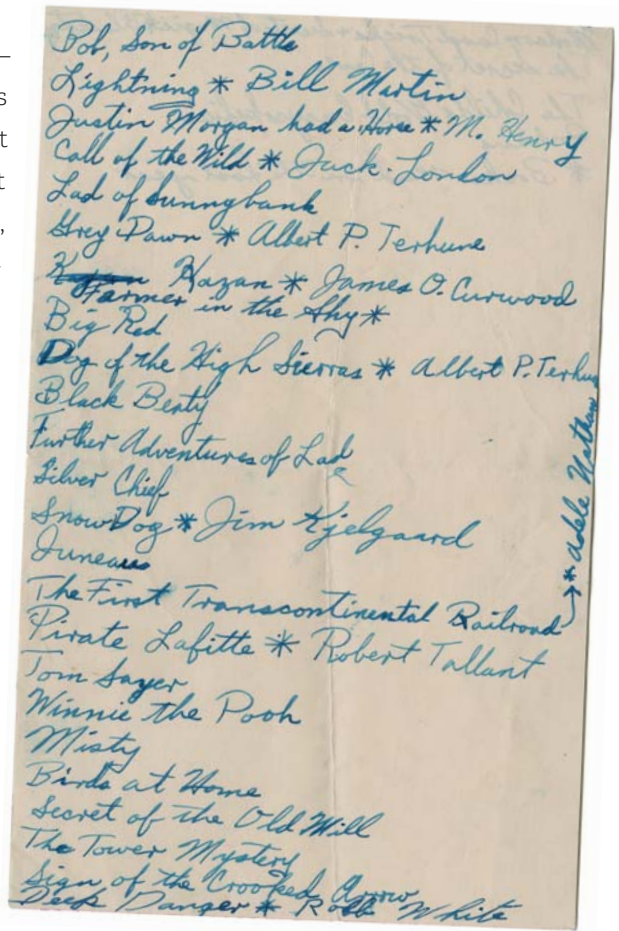 Bob, Son of Battle
Lightning * Bill Martin
Justin Morgan had a Horse * M. Henry
Call of the Wild * Jack London
Lad of Sunnybank
Grey Dawn * Albert P. Terhune
Kazan * James O. Curwood
Farmer in the Sky *
Big Red
Dog of the High Sierras * Albert P. Terhune
Black Beuty
Further Adventures of Lad
Silver Chief
Snow Dog * Jim Kjelgaard
Juneau
The First Transcontinental Railroad
* Adele Nathan
Pirate Lafitte * Robert Tallant
Tom Sayer
Winnie the Pooh
Misty
Birds at Home
Secret of the Old Mill
The Tower Mystery
Sign of the Crooked Arrow
Deep Danger * Robb White